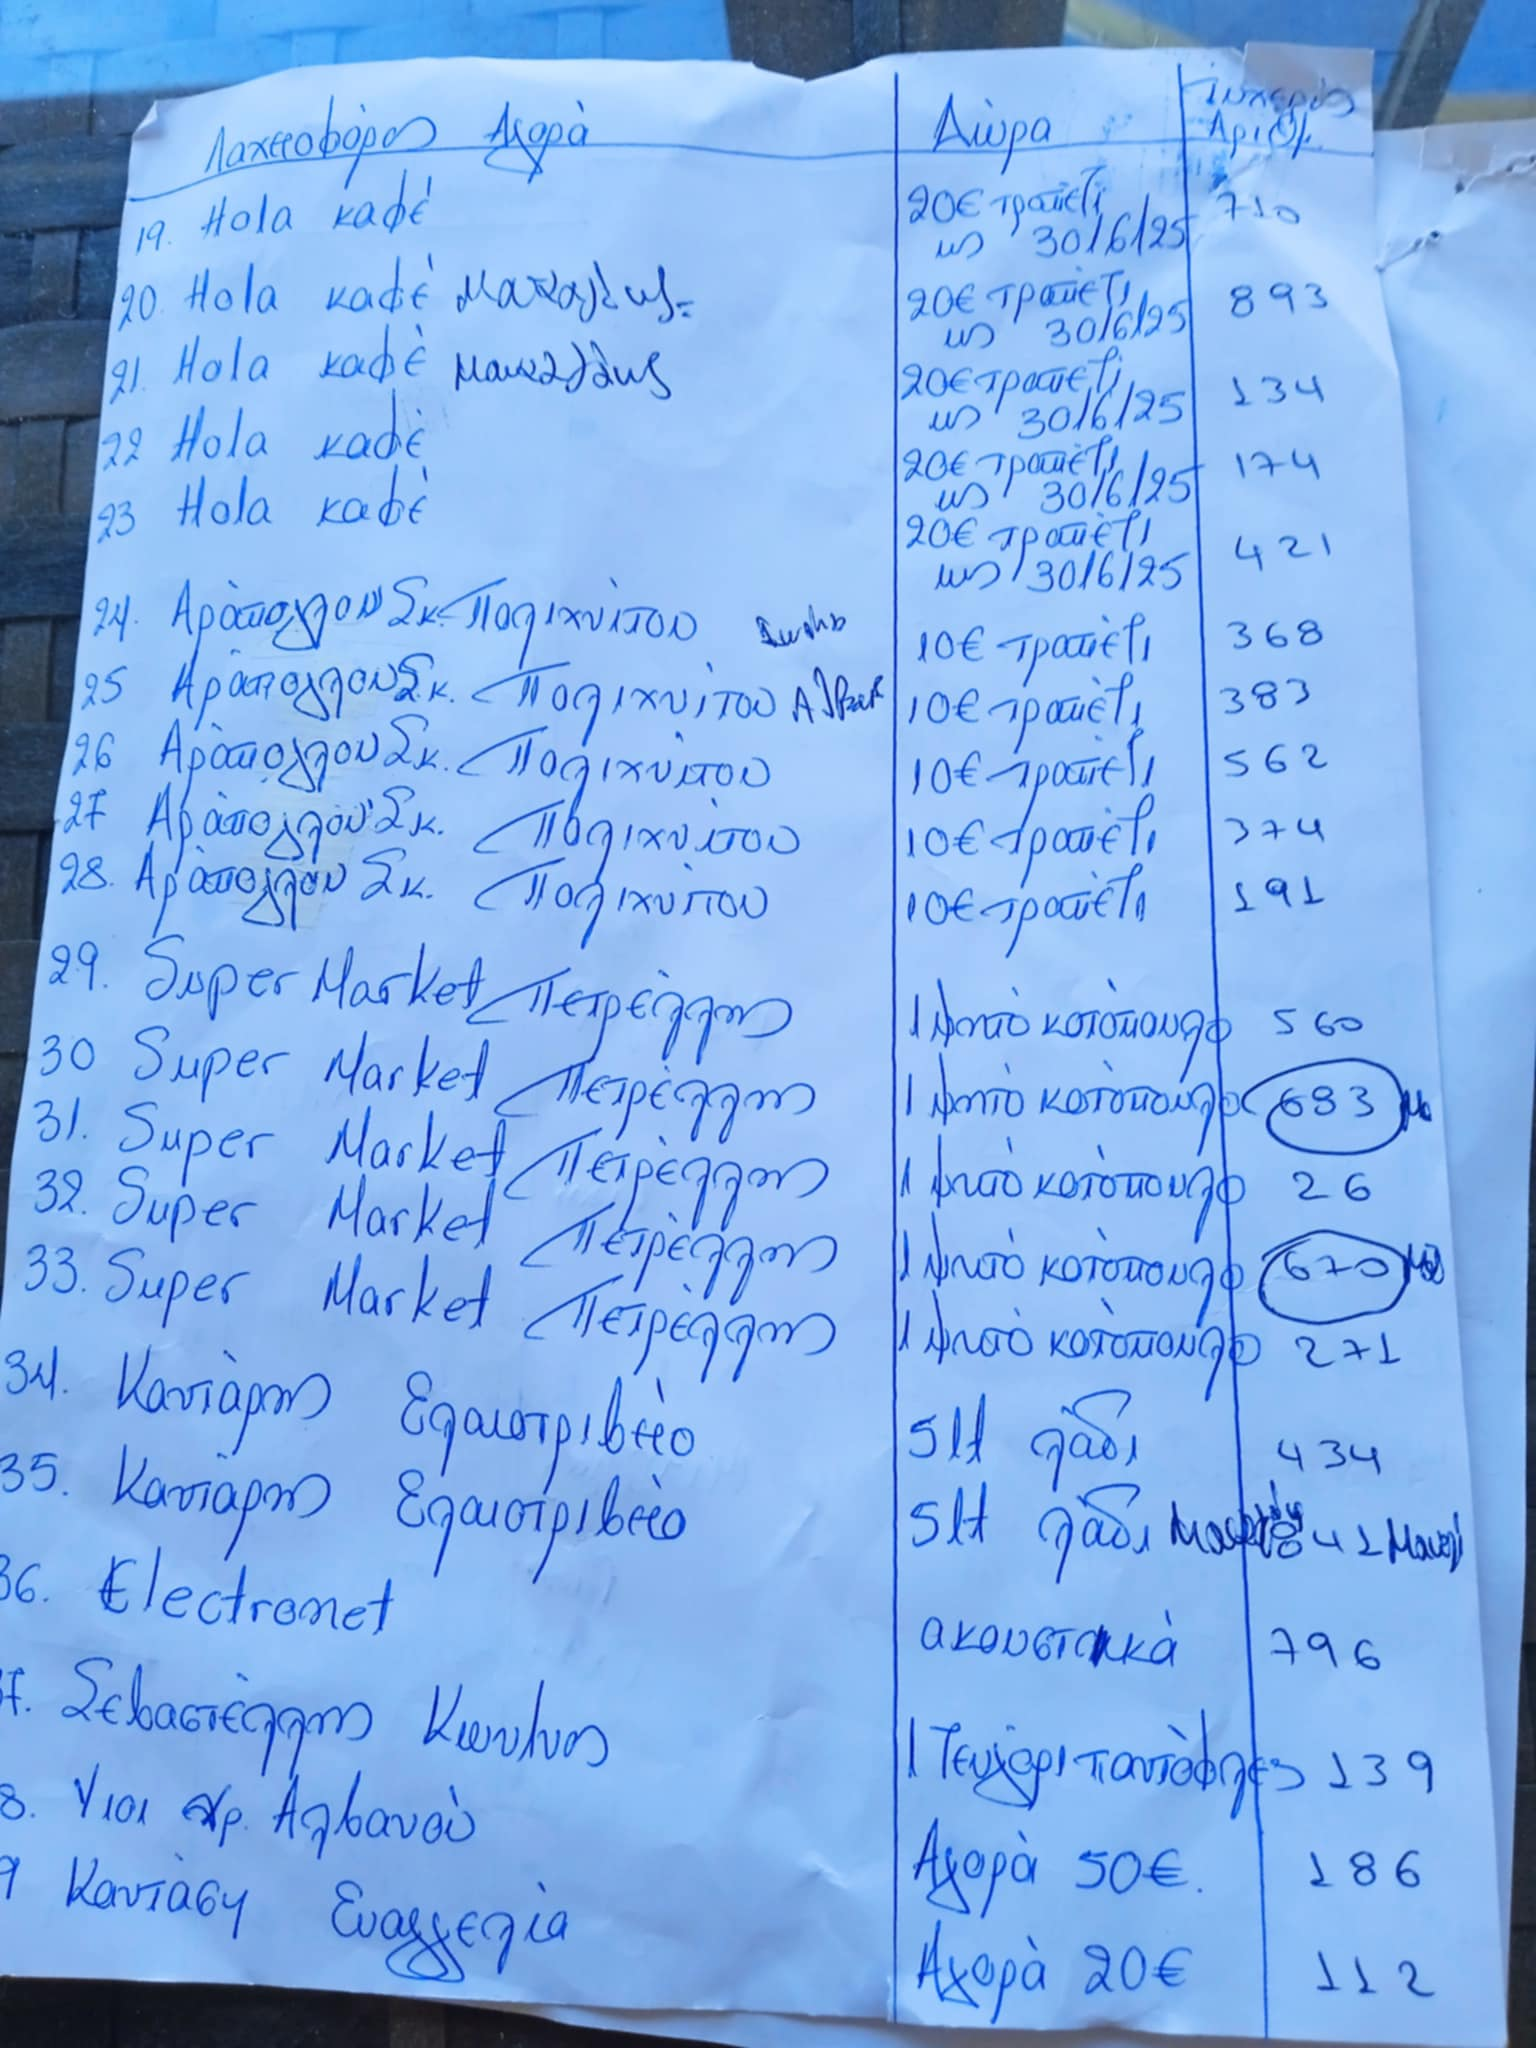 Λαχειοφόρος Αγορά Δώρα Τυχερός Αριθμ.
19. Hola καφέ 20€ τραπέζι 710
ως 30/6/25
20. Hola καφέ 20€ τραπέζι 893
ως 30/6/25
21. Hola καφέ 20€ τραπέζι 134
ως 30/6/25
22 Hola καφέ 20€ τραπέζι 174
ως 30/6/25
23 Hola καφέ 20€ τραπέζι 421
ως 30/6/25
24. Αράπογλου Σκ. Πολιχνίτου 10€ τραπέζι 368
25 Αράπογλου Σκ. Πολιχνίτου 10€ τραπέζι 383
26 Αράπογλου Σκ. Πολιχνίτου 10€ τραπέζι 562
27 Αράπογλου Σκ. Πολιχνίτου 10€ τραπέζι 374
28. Αράπογλου Σκ. Πολιχνίτου 10€ τραπέζι 191
29. Super Market Πετρέλλης 1 ψητό κοτόπουλο 560
30 Super Market Πετρέλλης 1 ψητό κοτόπουλο 683
31. Super Market Πετρέλλης 1 ψητό κοτόπουλο 26
32. Super Market Πετρέλλης 1 ψητό κοτόπουλο 670
33. Super Market Πετρέλλης 1 ψητό κοτόπουλο 271
34. Καντάρης Ελαιοτριβείο 5lt λάδι 434
35. Καντάρης Ελαιοτριβείο 5lt λάδι 41
36. Electronet ακουστικά 796
7. Σεβαστέλλης Κων/νος 1 Ζευγάρι παντόφλες 139
8. Υιοι Χρ. Αλβανού Αγορά 50€. 186
9 Καντάση Ευαγγελία Αγορά 20€ 112